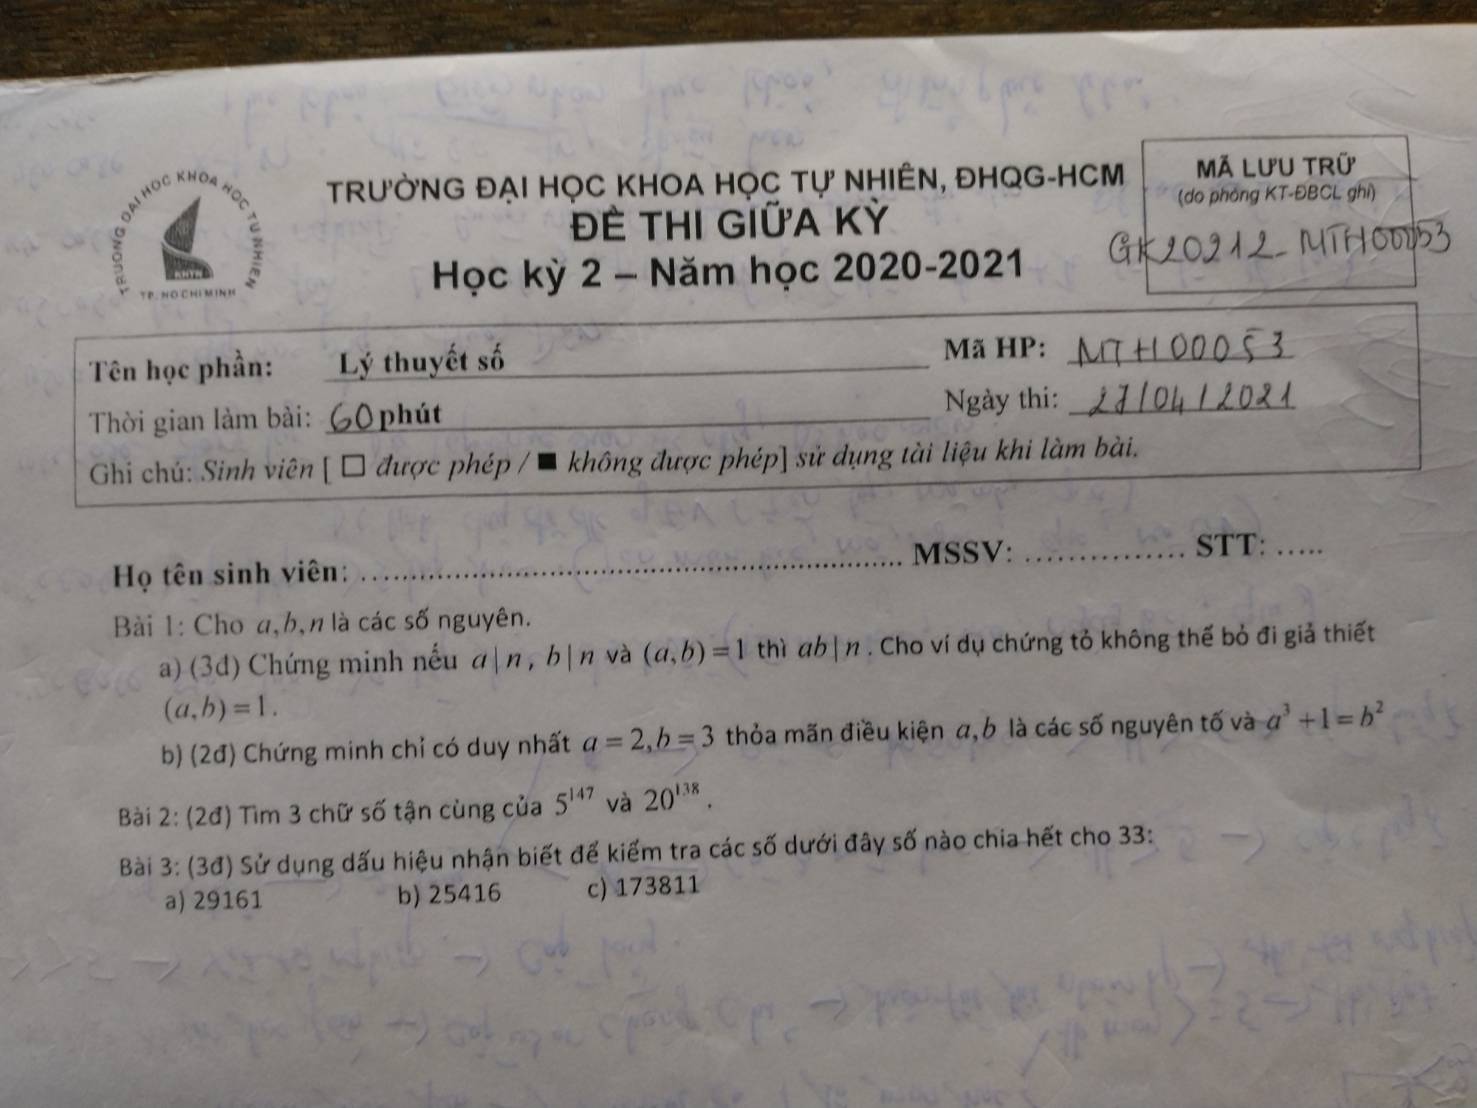 TRƯỜNG ĐẠI HỌC KHOA HỌC TỰ NHIÊN
KHTN
TP. HO CHI MINH
TRƯỜNG ĐẠI HỌC KHOA HỌC TỰ NHIÊN, ĐHQG-HCM
ĐỀ THI GIỮA KỲ
Học kỳ 2 – Năm học 2020-2021
MÃ LƯU TRỮ
(do phòng KT-ĐBCL ghi)
GK20212_MTH00053
Tên học phần: Lý thuyết số Mã HP: MTH00053
Thời gian làm bài: 60 phút Ngày thi: 27/04/2021
Ghi chú: Sinh viên [ ☐ được phép / ■ không được phép] sử dụng tài liệu khi làm bài.
Họ tên sinh viên: ........................................ MSSV: ............... STT: .....
Bài 1: Cho a,b,n là các số nguyên.
a) (3đ) Chứng minh nếu a|n, b|n và (a,b)=1 thì ab|n. Cho ví dụ chứng tỏ không thể bỏ đi giả thiết
(a,b)=1.
b) (2đ) Chứng minh chỉ có duy nhất a=2,b=3 thỏa mãn điều kiện a,b là các số nguyên tố và a³+1=b²
Bài 2: (2đ) Tìm 3 chữ số tận cùng của 5¹⁴⁷ và 20¹³⁸.
Bài 3: (3đ) Sử dụng dấu hiệu nhận biết để kiểm tra các số dưới đây số nào chia hết cho 33:
a) 29161 b) 25416 c) 173811